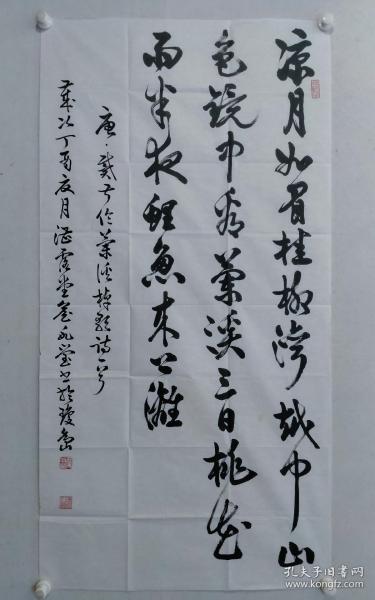 凉月如眉挂柳湾越中山
色镜中看兰溪三日桃花
雨半夜鲤鱼来上滩
唐·戴叔伦兰溪棹歌诗一首
岁次丁酉夏月
孔夫子旧书网